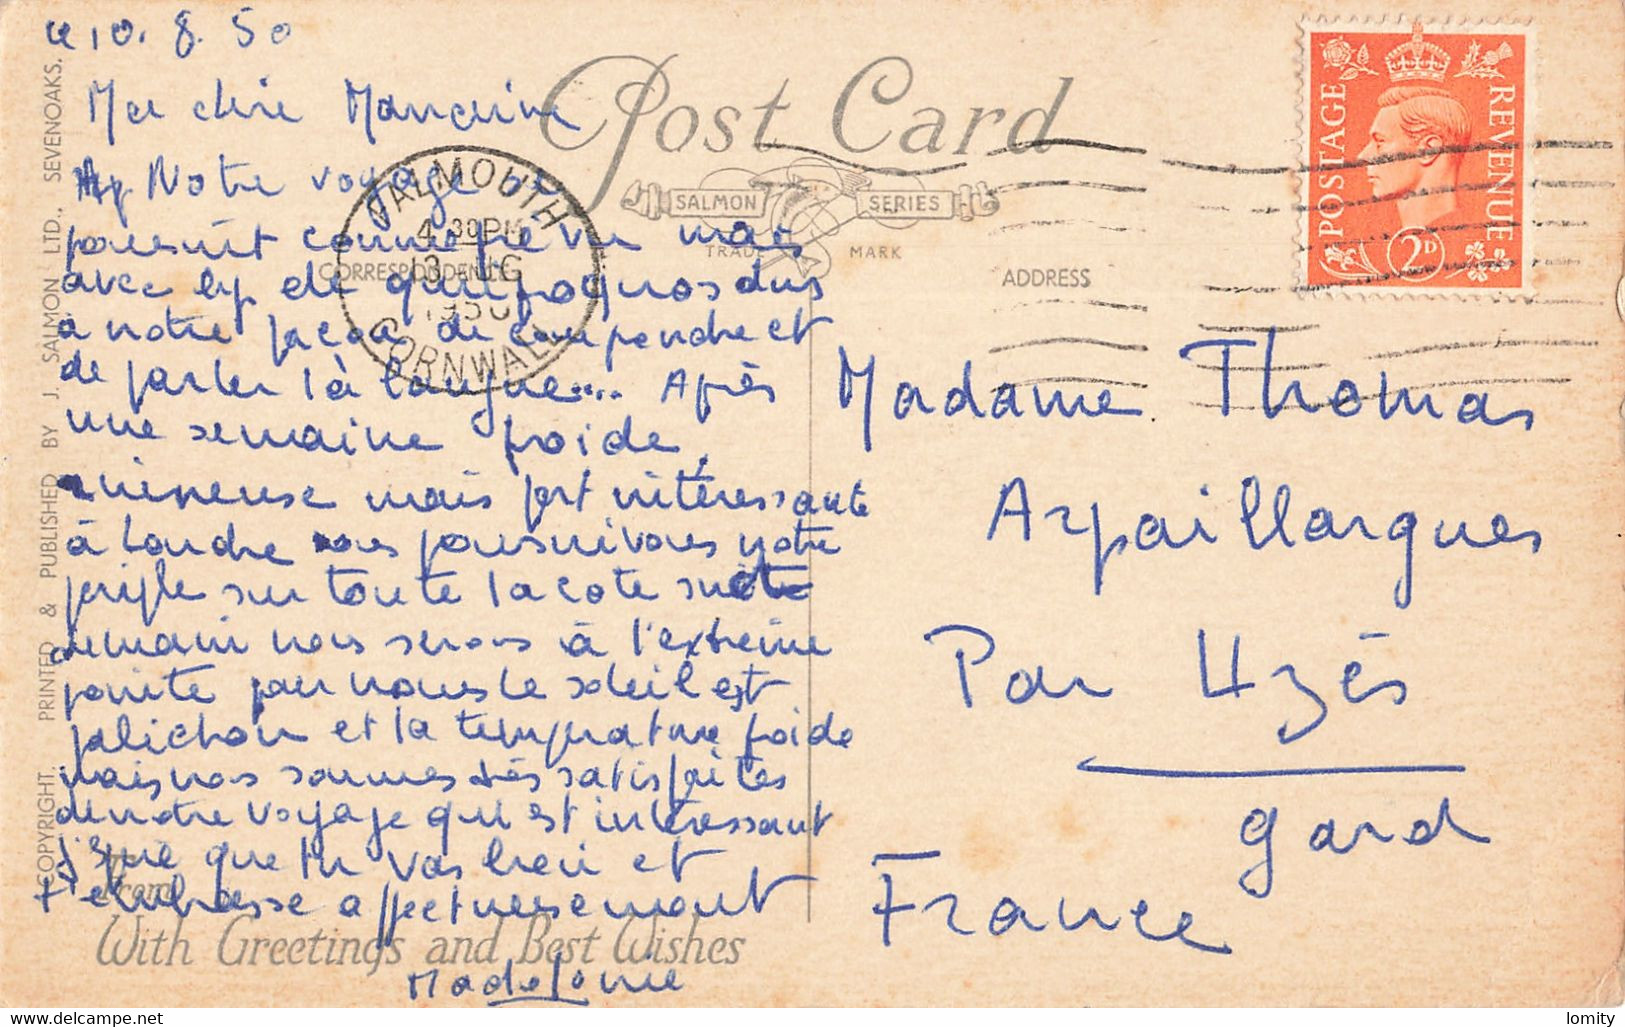 le 10. 8. 50
Ma chère Marraine
Notre voyage se
poursuit comme prévu mais
avec
à notre façon de comprendre et
de parler la langue.... Après
une semaine froide,
mais fort intéressante
à Londre nous poursuivons notre
périple sur toute la côte
demain nous serons à l'extrême
pointe pour nous le soleil est
palichon et la température froide
mais nous sommes très satisfaites
de notre voyage qui est intéressant
J'espère que tu vas bien et
t'embrasse affectueusement
Madelonie
Post Card
SALMON SERIES
TRADE MARK
CORRESPONDENCE
ADDRESS
FALMOUTH
4.30PM
13 AUG
1950
CORNWALL
POSTAGE REVENUE
2D
Madame Thomas
Arpaillargues
Par Uzès
Gard
France
From
With Greetings and Best Wishes
COPYRIGHT. PRINTED & PUBLISHED BY J. SALMON LTD., SEVENOAKS.
lomity